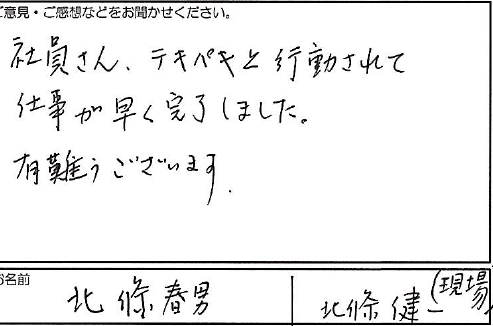 ご意見・ご感想などをお聞かせください。
社員さん、テキパキと行動されて
仕事が早く完了しました。
有難うございます.
お名前
北條春男
北條健一(現場)